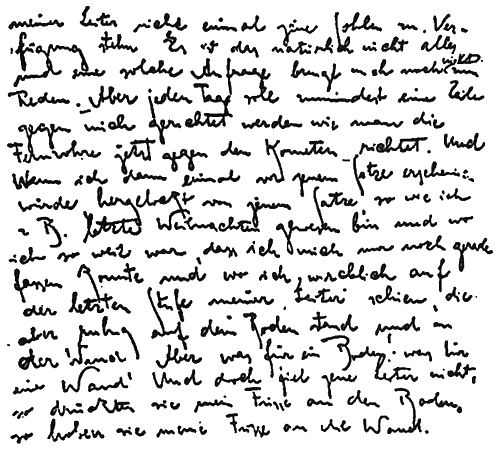 meiner Leiter nicht einmal jene Sohlen zu Ver-
fügung stehn. Es ist das natürlich nicht alles
und eine solche Anfrage bringt mich noch nicht zum
Reden. Aber jeden Tag soll zumindest eine Zeile
gegen mich gerichtet werden wie man die
Fernrohre jetzt gegen den Kometen richtet. Und
wenn ich dann einmal vor jenem Satze erscheinen
würde hergelockt von jenem Satze so wie ich
z. B. letzte Weihnachten gewesen bin und wo
ich so weit war, dass ich mich nur noch gerade
fassen konnte und wo ich wirklich auf
der letzten Stufe meiner Leiter schien, die
aber ruhig auf dem Boden stand und an
der Wand. Aber was für ein Boden, was für
eine Wand! Und doch fiel jene Leiter nicht,
so drückten sie meine Füsse an den Boden,
so hoben sie meine Füsse an die Wand.